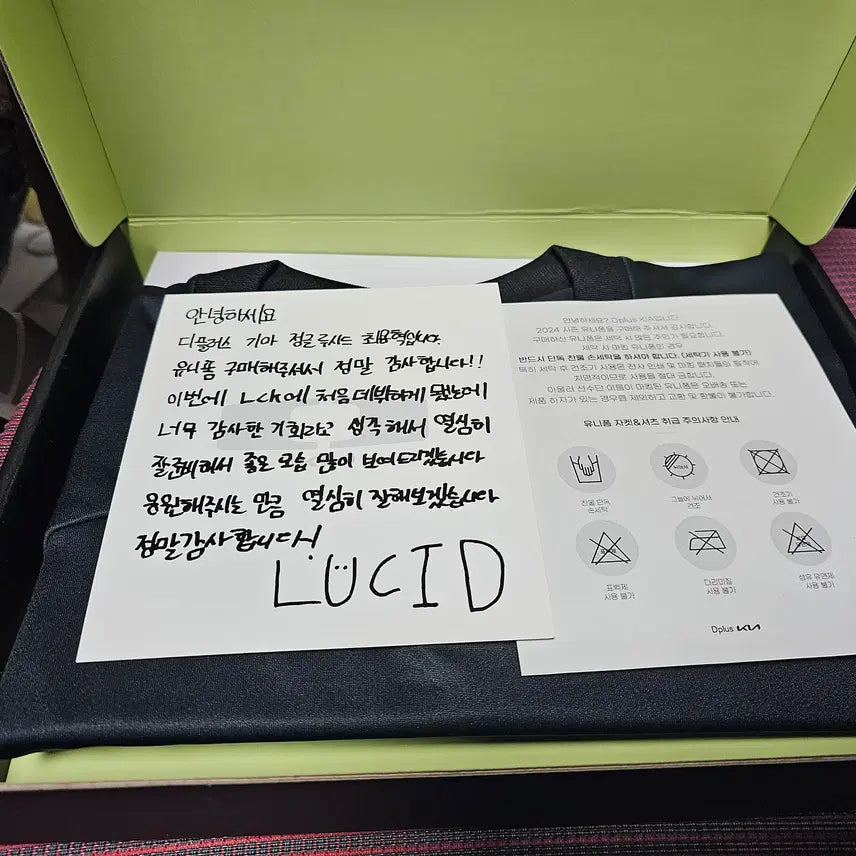 안녕하세요
디플러스 기아 정글 루시드 최용혁입니다.
유니폼 구매해주셔서 정말 감사합니다!!
이번에 LCK에 처음 데뷔하게 됐는데
너무 감사한 기회라고 생각해서 열심히
잘준비해서 좋은 모습 많이 보여드리겠습니다
응원해주시는 만큼 열심히 잘해보겠습니다
정말감사합니다!
LUCID
안녕하세요? Dplus KIA입니다.
2024 시즌 유니폼을 구매해 주셔서 감사합니다.
구매하신 유니폼은 세탁 시 많은 주의가 필요합니다.
세탁 시 마킹 유니폼의 경우
반드시 단독 찬물 손세탁을 하셔야 합니다. (세탁기 사용 불가)
특히 세탁 후 건조기 사용은 전사 인쇄 및 마킹 패치들의 탈착에
치명적이므로 사용을 절대 금합니다.
아울러 선수단 이름이 마킹된 유니폼은 오배송 또는
제품 하자가 있는 경우를 제외하고 교환 및 환불이 불가합니다.
유니폼 자켓&셔츠 취급 주의사항 안내
찬물 단독
손세탁
뉘어서
그늘에 뉘어서
건조
건조기
사용 불가
표백제
사용 불가
다리미질
사용 불가
섬유 유연제
사용 불가
Dplus KIA